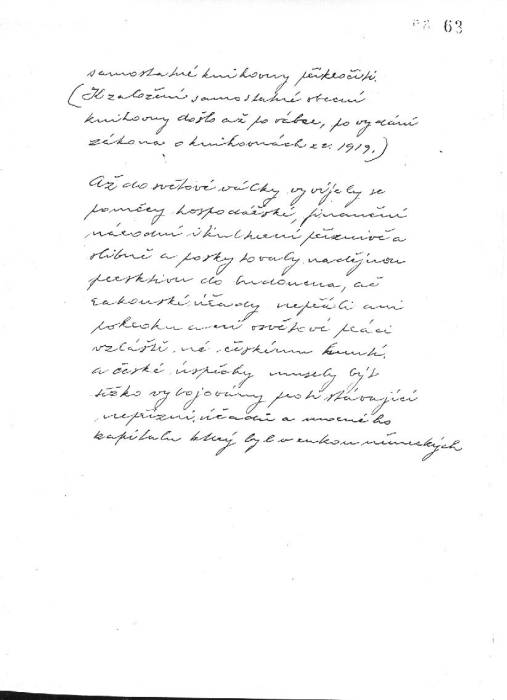 63
samostatné knihovny přikročiti.
(K založení samostatné obecní
knihovny došlo až po válce, po vydání
zákona o knihovnách z r. 1919.)
Až do světové války vyvíjely se
poměry hospodářské, finanční
národní i kulturní příznivě a
slibně a poskytovaly nadějnou
perspektivu do budoucna, ač
rakouské úřady nepřáli ani
pokroku ani osvětové práci
vzláště ne českému hnutí
a české úspěchy musely být
těžko vybojovány proti stávající
nepřízni úřadů a mocného
kapitalu který byl v rukou německých